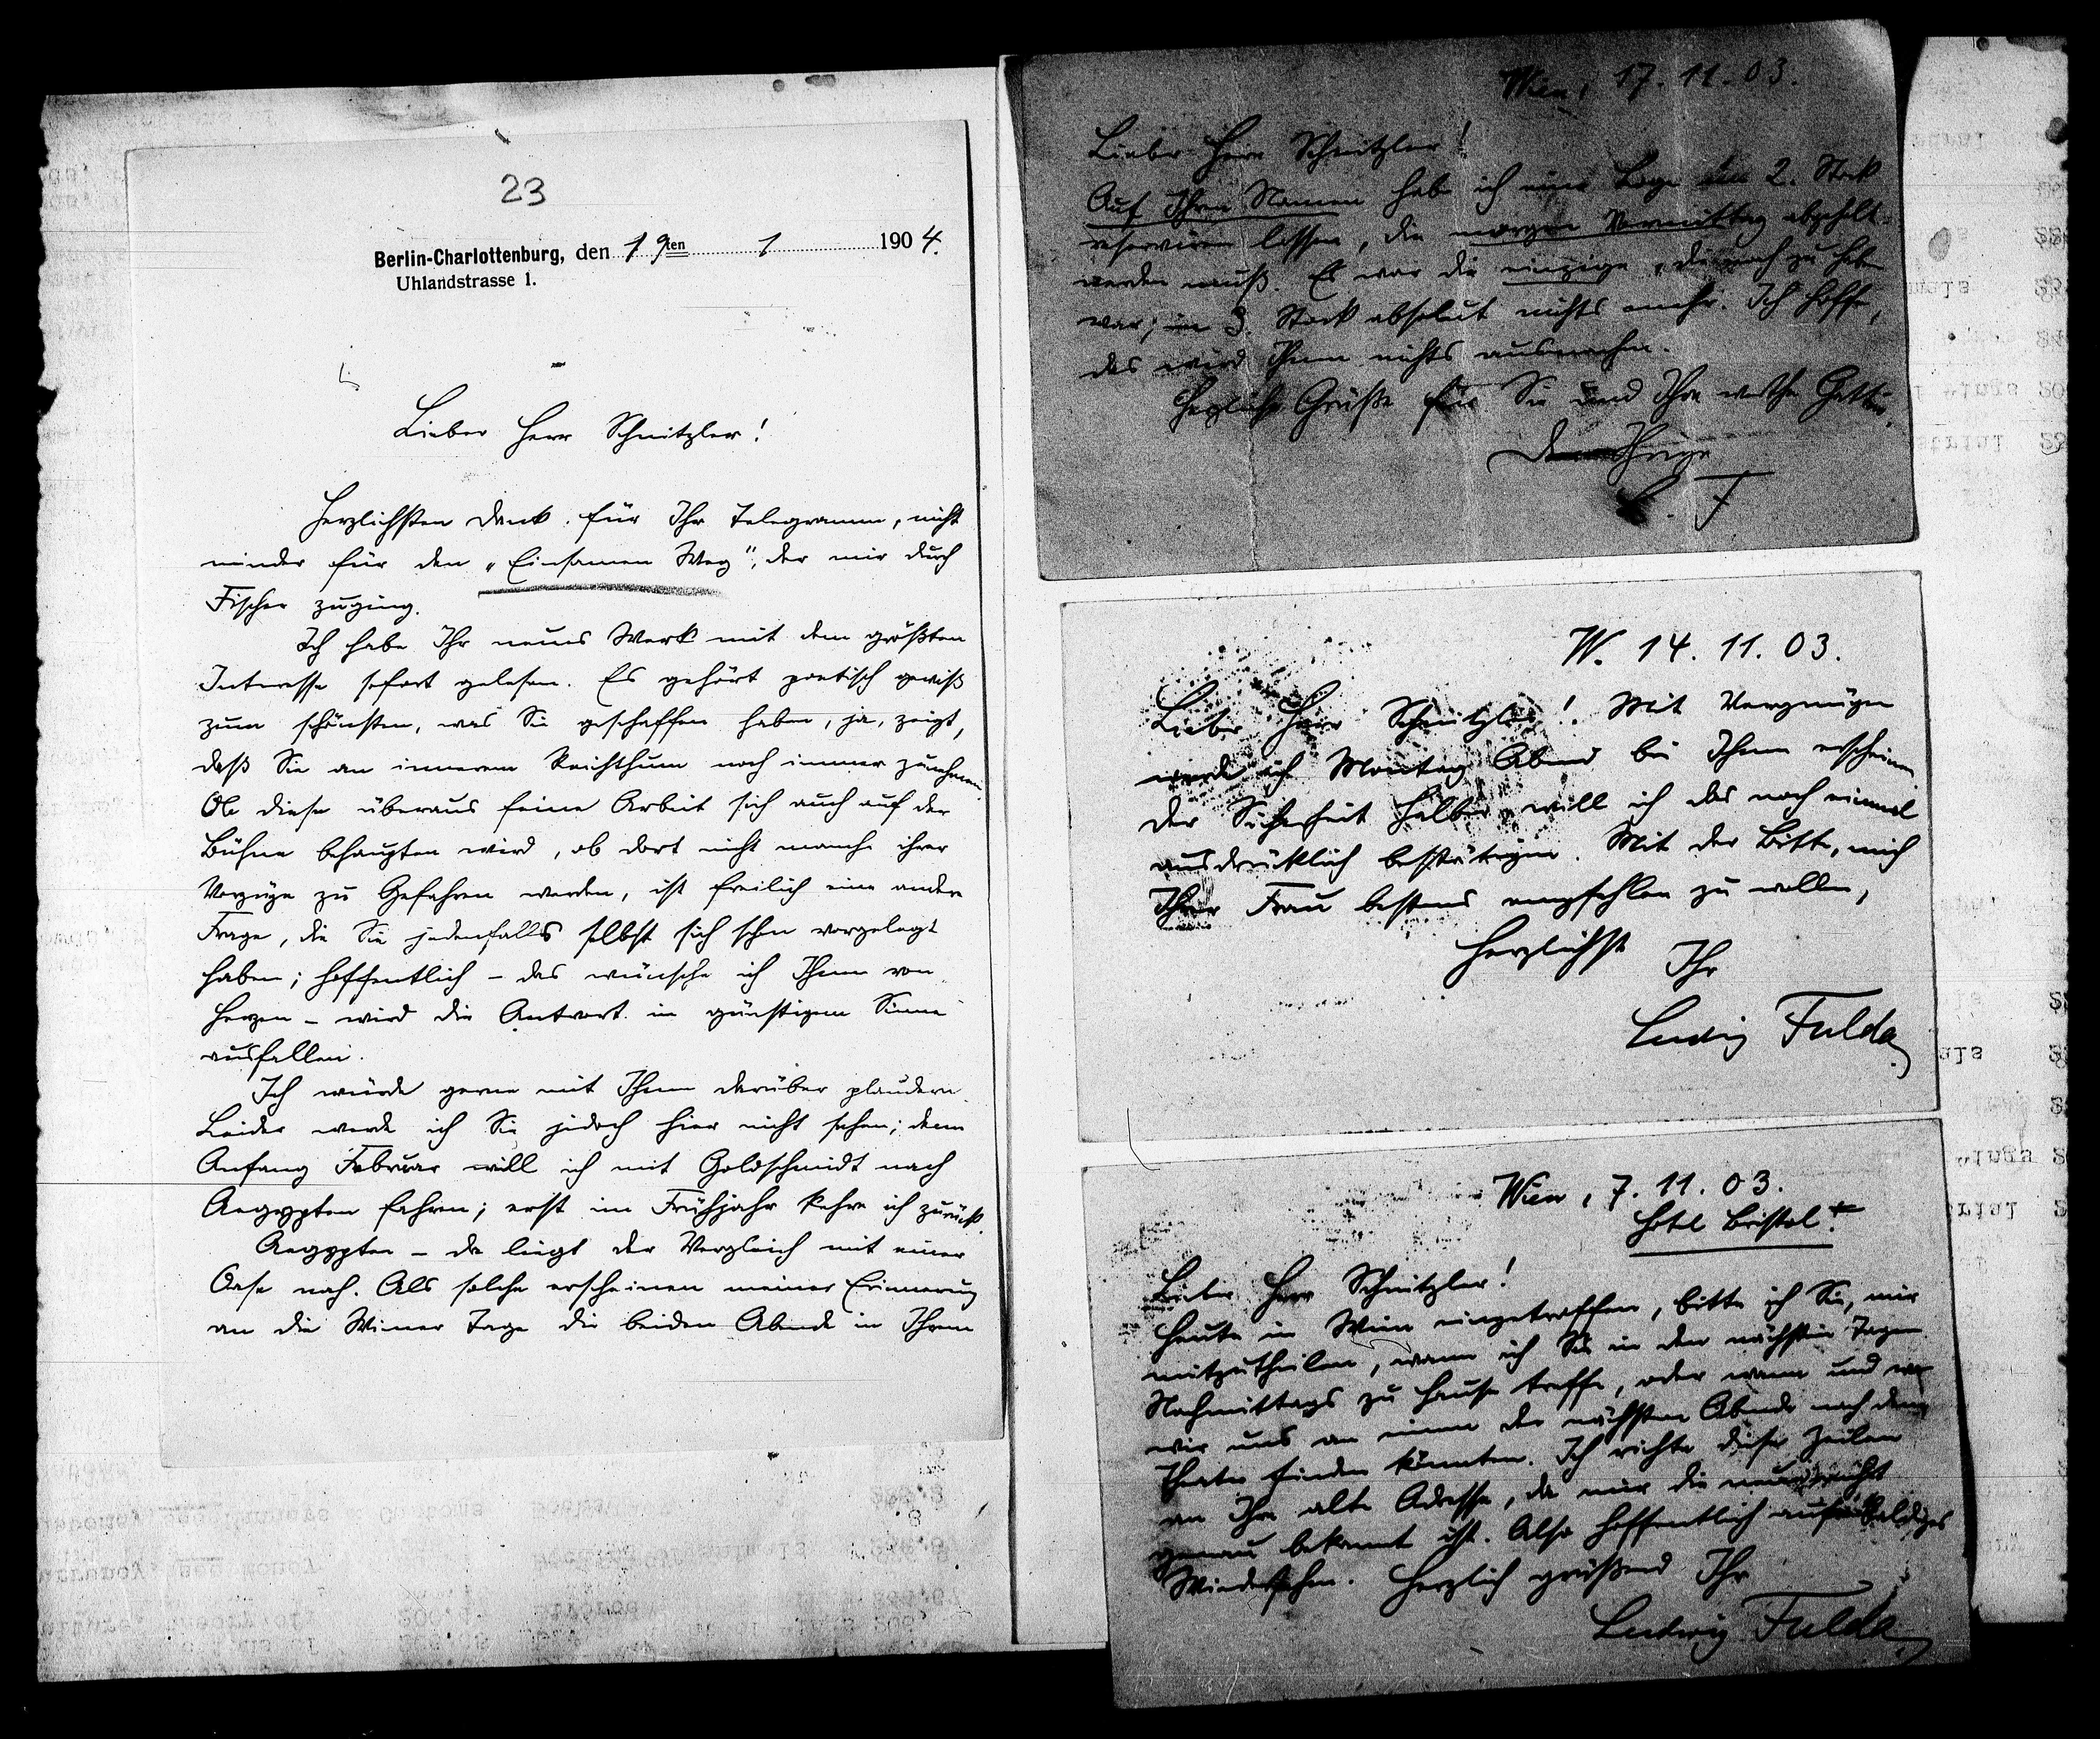 23
Berlin-Charlottenburg, den 19ten 1 1904.
Uhlandstrasse 1.
Lieber Herr Schnitzler!
Herzlichsten Dank für Ihr Telegramm, nicht
minder für den „Einsamen Weg“, der mir durch
Fischer zuging.
Ich habe Ihr neues Werk mit dem größten
Interesse sofort gelesen. Es gehört poetisch gewiß
zum schönsten, was Sie geschaffen haben, ja, zeigt,
daß Sie an innerem Reichthum noch immer zunehmen.
Ob diese überaus feine Arbeit sich auch auf der
Bühne behaupten wird, ob dort nicht manche ihrer
Vorzüge zu Gefahren werden, ist freilich eine andere
Frage, die Sie jedenfalls selbst sich schon vorgelegt
haben; hoffentlich – das wünsche ich Ihnen von
Herzen – wird die Antwort in günstigem Sinne
ausfallen.
Ich würde gerne mit Ihnen darüber plaudern.
Leider werde ich Sie jedoch hier nicht sehen; denn
Anfang Februar will ich mit Goldschmidt nach
Aegypten fahren; erst im Frühjahr kehre ich zurück.
Aegypten – da liegt der Vergleich mit einer
Oase nah. Als solche erscheinen meiner Erinnerung
an die Wiener Tage die beiden Abende in Ihrem
Wien, 17. 11. 03.
Lieber Herr Schnitzler!
Auf Ihren Namen habe ich eine Loge im 2. Stock
reserviren lassen, die morgen Vormittag abgeholt
werden muß. Es war die einzige, die noch zu haben
war; im 3. Stock absolut nichts mehr. Ich hoffe,
das wird Ihnen nichts ausmachen.
Herzliche Grüße für Sie und Ihre werthe Gattin.
Ihrige
L. F
W. 14. 11. 03.
Lieber Herr Schnitzler! Mit Vergnügen
werde ich Montag Abend bei Ihnen erscheinen
der Sicherheit halber will ich das noch einmal
ausdrücklich bestätigen. Mit der Bitte, mich
Ihrer Frau bestens empfehlen zu wollen,
herzlichst
Ihr
Ludwig Fulda
Wien, 7. 11. 03.
Hotel Bristol.
Lieber Herr Schnitzler!
Heute in Wien eingetroffen, bitte ich Sie, mir
mitzutheilen, wann ich Sie in den nächsten Tagen
Nachmittags zu Hause treffe, oder wann und wo
wir uns an einem der nächsten Abende nach dem
Theater finden könnten. Ich richte diese Zeilen
an Ihre alte Adresse, da mir die neue nicht
genau bekannt ist. Also hoffentlich auf baldiges
Wiedersehen. Herzlich grüßend Ihr
Ludwig Fulda